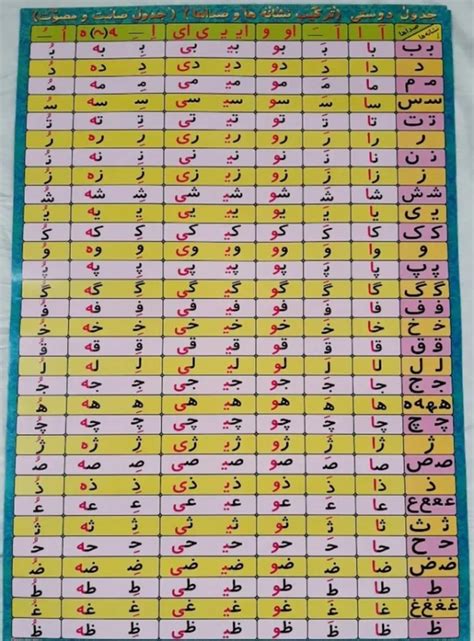 جدول دوستی (ترکیب نشانه ها و صداها) (جدول صامت و مصوّت)
صداها نشانه‌ها آ ا اَ ـَ او و ایـ یـ ی ای اِ ـِ ـه ه اُ ـُ
بـ ب با بَـ بو بیـ بی بِـ به بُـ
د دا دَ دو دیـ دی دِ ده دُ
مـ م ما مَـ مو میـ می مِـ مه مُـ
سـ س سا سَـ سو سیـ سی سِـ سه سُـ
تـ ت تا تَـ تو تیـ تی تِـ ته تُـ
ر را رَ رو ریـ ری رِ ره رُ
نـ ن نا نَـ نو نیـ نی نِـ نه نُـ
ز زا زَ زو زیـ زی زِ زه زُ
شـ ش شا شَـ شو شیـ شی شِـ شه شُـ
یـ ی یا یَـ یو ییـ یی یِـ یه یُـ
کـ ک کا کَـ کو کیـ کی کِـ که کُـ
و وا وَ وو ویـ وی وِ وه وُ
پـ پ پا پَـ پو پیـ پی پِـ په پُـ
گـ گ گا گَـ گو گیـ گی گِـ گه گُـ
فـ ف فا فَـ فو فیـ فی فِـ فه فُـ
خـ خ خا خَـ خو خیـ خی خِـ خه خُـ
قـ ق قا قَـ قو قیـ قی قِـ قه قُـ
لـ ل لا لَـ لو لیـ لی لِـ له لُـ
جـ ج جا جَـ جو جیـ جی جِـ جه جُـ
هـ ـهـ ـه ه ها هَـ هو هیـ هی هِـ هه هُـ
چـ چ چا چَـ چو چیـ چی چِـ چه چُـ
ژ ژا ژَ ژو ژیـ ژی ژِ ژه ژُ
صـ ص صا صَـ صو صیـ صی صِـ صه صُـ
ذ ذا ذَ ذو ذیـ ذی ذِ ذه ذُ
عـ ـعـ ـع ع عا عَـ عو عیـ عی عِـ عه عُـ
ثـ ث ثا ثَـ ثو ثیـ ثی ثِـ ثه ثُـ
حـ ح حا حَـ حو حیـ حی حِـ حه حُـ
ضـ ض ضا ضَـ ضو ضیـ ضی ضِـ ضه ضُـ
ط طا طَـ طو طیـ طی طِـ طه طُـ
غـ ـغـ ـغ غ غا غَـ غو غیـ غی غِـ غه غُـ
ظ ظا ظَـ ظو ظیـ ظی ظِـ ظه ظُـ